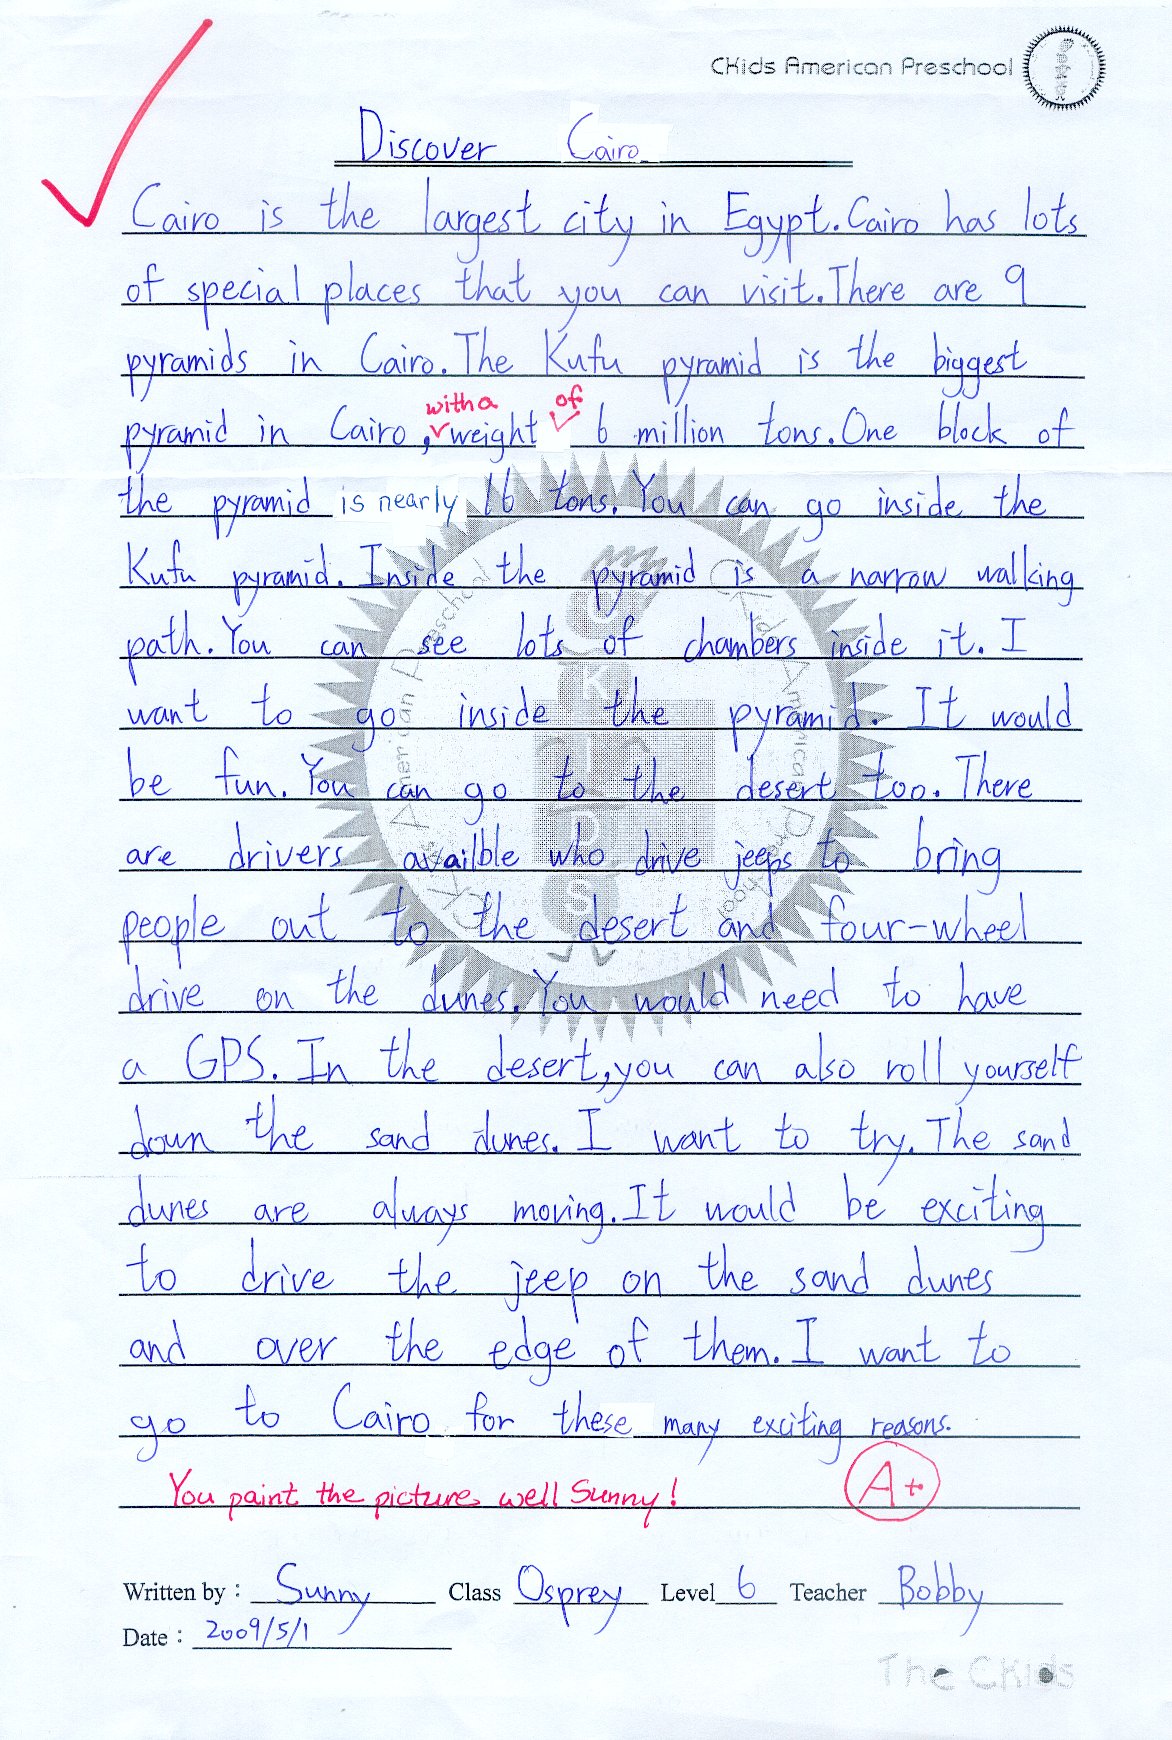 CKids American Preschool
Discover Cairo
Cairo is the largest city in Egypt. Cairo has lots
of special places that you can visit. There are 9
pyramids in Cairo. The Kufu pyramid is the biggest
with a of
pyramid in Cairo, weight 6 million tons. One block of
the pyramid is nearly 16 tons. You can go inside the
Kufu pyramid. Inside the pyramid is a narrow walking
path. You can see lots of chambers inside it. I
want to go inside the pyramid. It would
be fun. You can go to the desert too. There
are drivers availble who drive jeeps to bring
people out to the desert and four-wheel
drive on the dunes. You would need to have
a GPS. In the desert, you can also roll yourself
down the sand dunes. I want to try. The sand
dunes are always moving. It would be exciting
to drive the jeep on the sand dunes
and over the edge of them. I want to
go to Cairo for these many exciting reasons.
You paint the picture well Sunny! A+
Written by : Sunny Class Osprey Level 6 Teacher Bobby
Date : 2009/5/1
The CKids